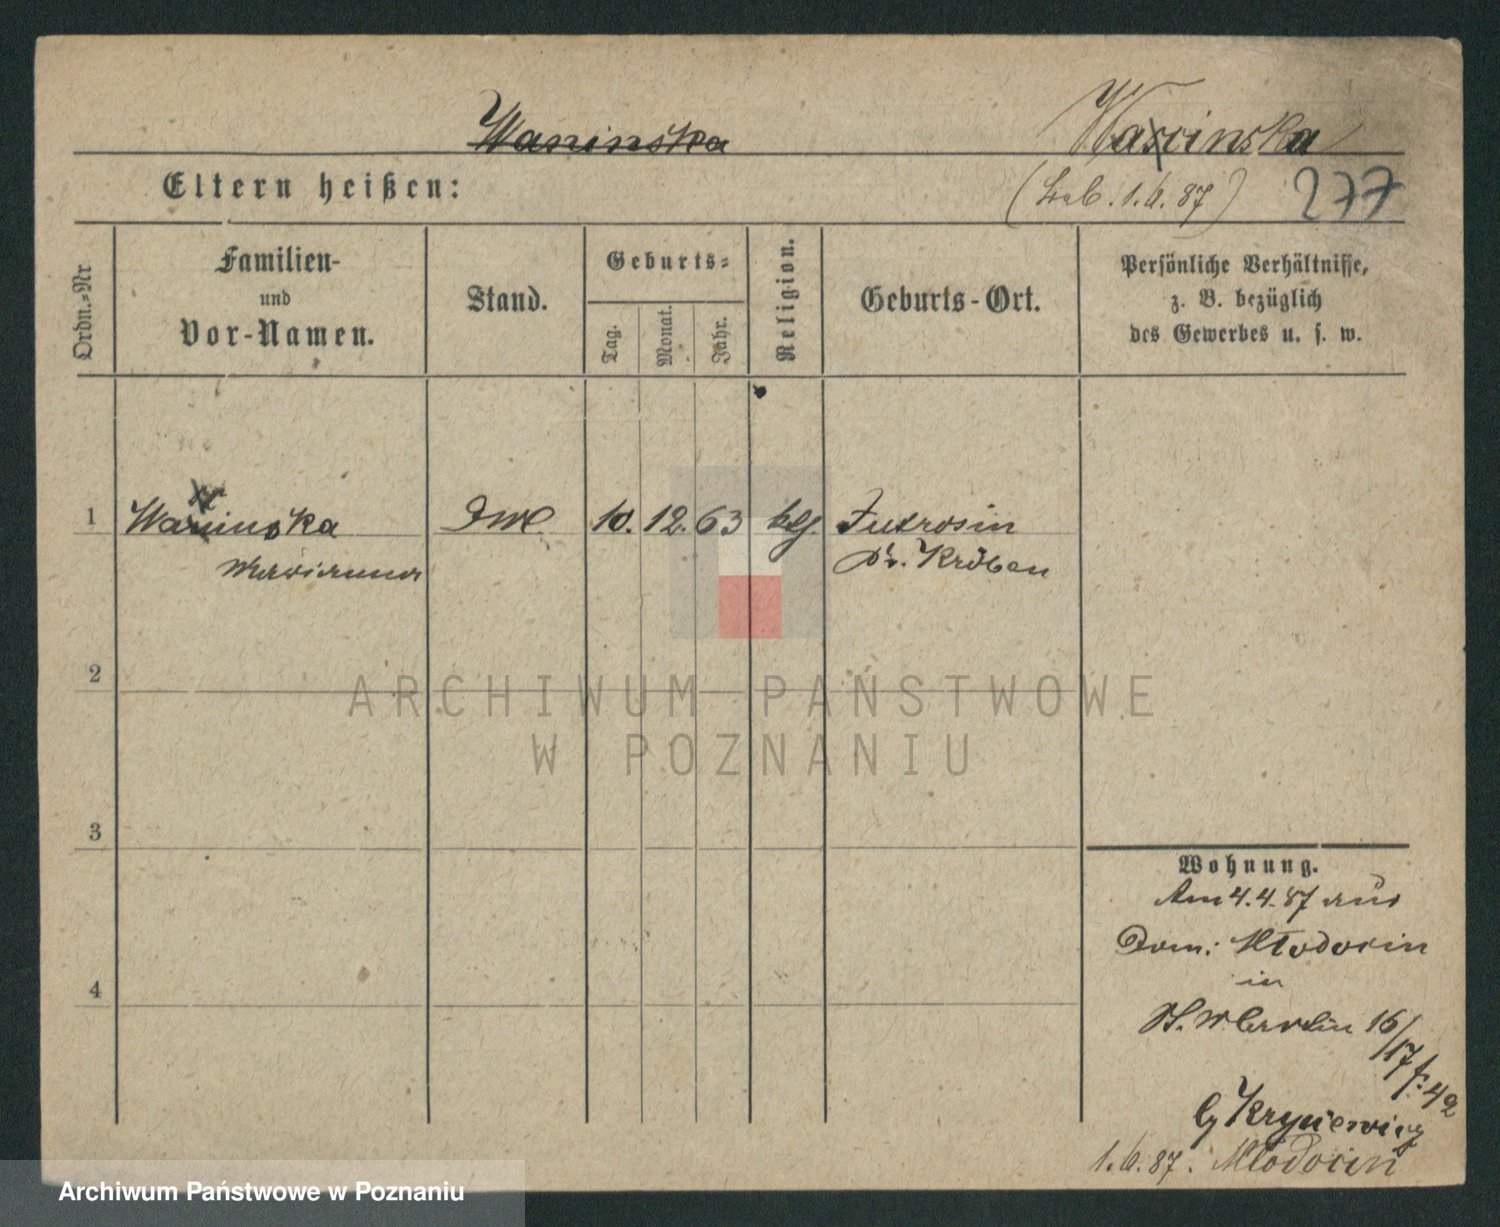 Waninska
Warcinska
Eltern heißen:
(1.6.87)
277
Ordn.-Nr.
Familien-
und
Vor-Namen.
Stand.
Geburts-
Tag.
Monat.
Jahr.
Religion.
Geburts-Ort.
Persönliche Verhältnisse,
z. B. bezüglich
des Gewerbes u. s. w.
1
Waninska
Marianna
10. 12. 63
Jutrosin
Kr. Kröben
2
3
4
Wohnung.
Am 4.4.87 aus
Dom: Młodocin
in
16/17
42
b/
1.6.87. Młodocin
ARCHIWUM PAŃSTWOWE
W POZNANIU
Archiwum Państwowe w Poznaniu